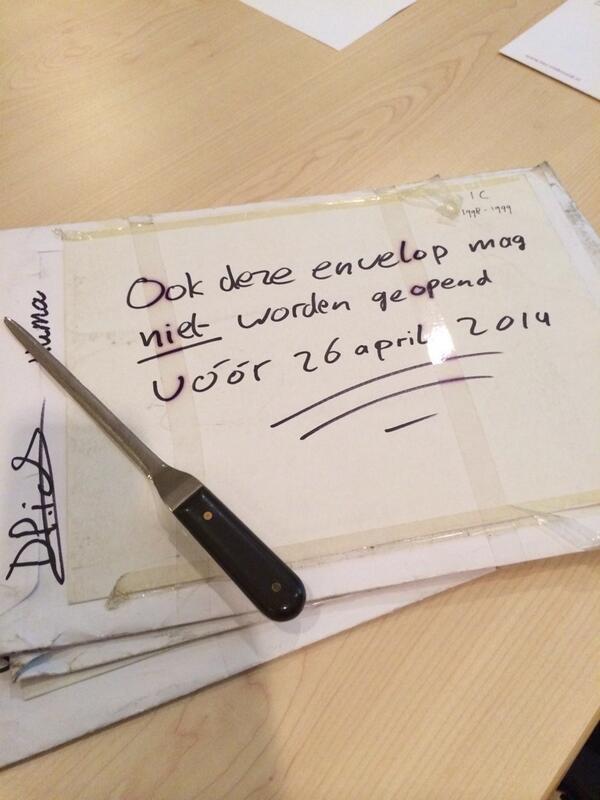 1C
1998-1999
Ook deze envelop mag
niet worden geopend
vóór 26 april 2014